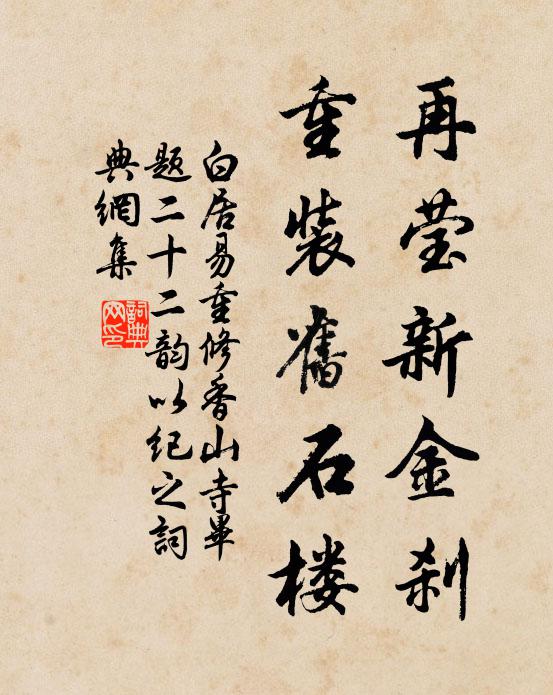 再莹新金刹
重装舊石楼
白居易重修香山寺畢
题二十二韵以纪之詞
典網集
詞典网印